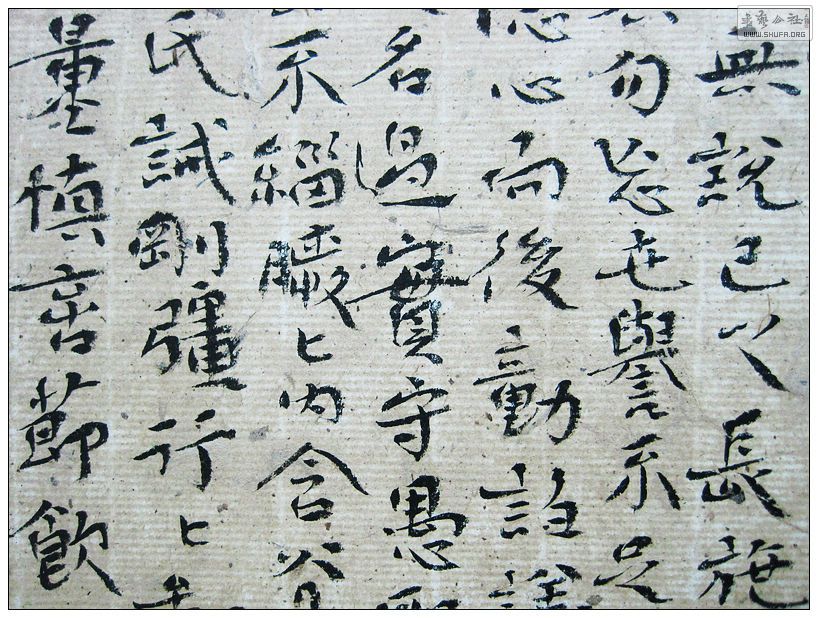 無說己以長施
勿忘世譽不足
心而後動
名過實守愚
不緇曖〻內含
氏誡剛彊行〻
量慎言節飲
書藝公社
WWW.SHUFA.ORG